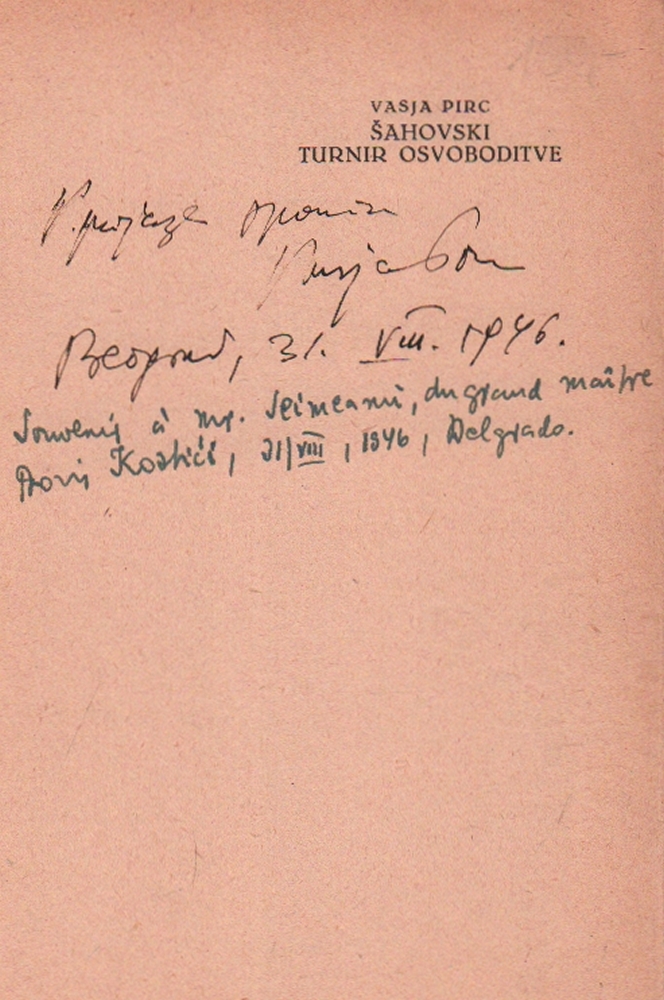 VASJA PIRC
ŠAHOVSKI
TURNIR OSVOBODITVE
V prijazen spomin
Vasja Pirc
Beograd, 31. VIII. 1946.
Souvenir à mr. Seimeanu, du grand maître
Boris Kostić, 31/VIII, 1946, Belgrado.